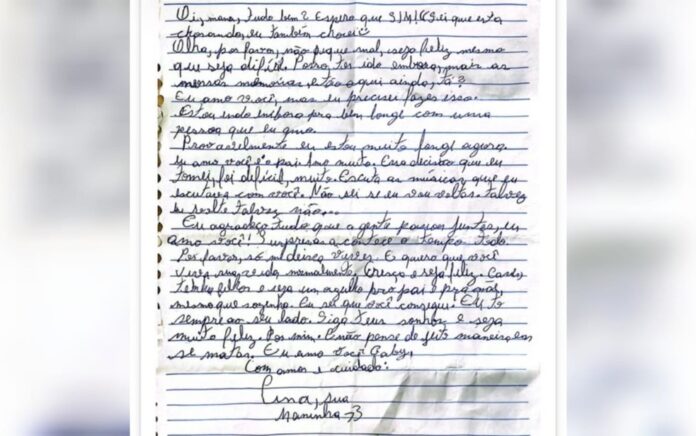 Oi, mana, tudo bem? Espero que SIM! Sei que esta
chorando, eu também chorei
Olha, por favor, não fique mal, seja feliz, mesmo
que seja dificil. Posso ter ido embora, mais as
nossas memórias, estão aqui ainda, tá?
Eu amo você, mas eu precisei fazer isso.
Estou indo embora pra bem longe com uma
pessoa que eu amo.
Provavelmente eu estou muito longe agora.
Eu amo você e o pai amo muito. Essa decisão que eu
tomei, foi dificil, muito. Escuta as músicas que eu
escutava com você. Não sei se eu vou voltar. Talvez
eu volte talvez não...
Eu agradeço tudo que a gente passou juntas, eu
amo você! Surpresas acontece o tempo todo.
Por favor, só me deixa viver. E quero que você
viva sua vida normalmente, cresça e seja feliz. Case,
tenha filhos e seja um orgulho pro pai e pra mãe,
mesmo que sozinha. Eu sei que você consegue. Eu to
sempre ao seu lado. Siga teus sonhos e seja
muito feliz. Por mim. E não pense de jeito maneira em
se matar. Eu amo você Gaby,
Com amor e cuidado:
sua
Maninha <3